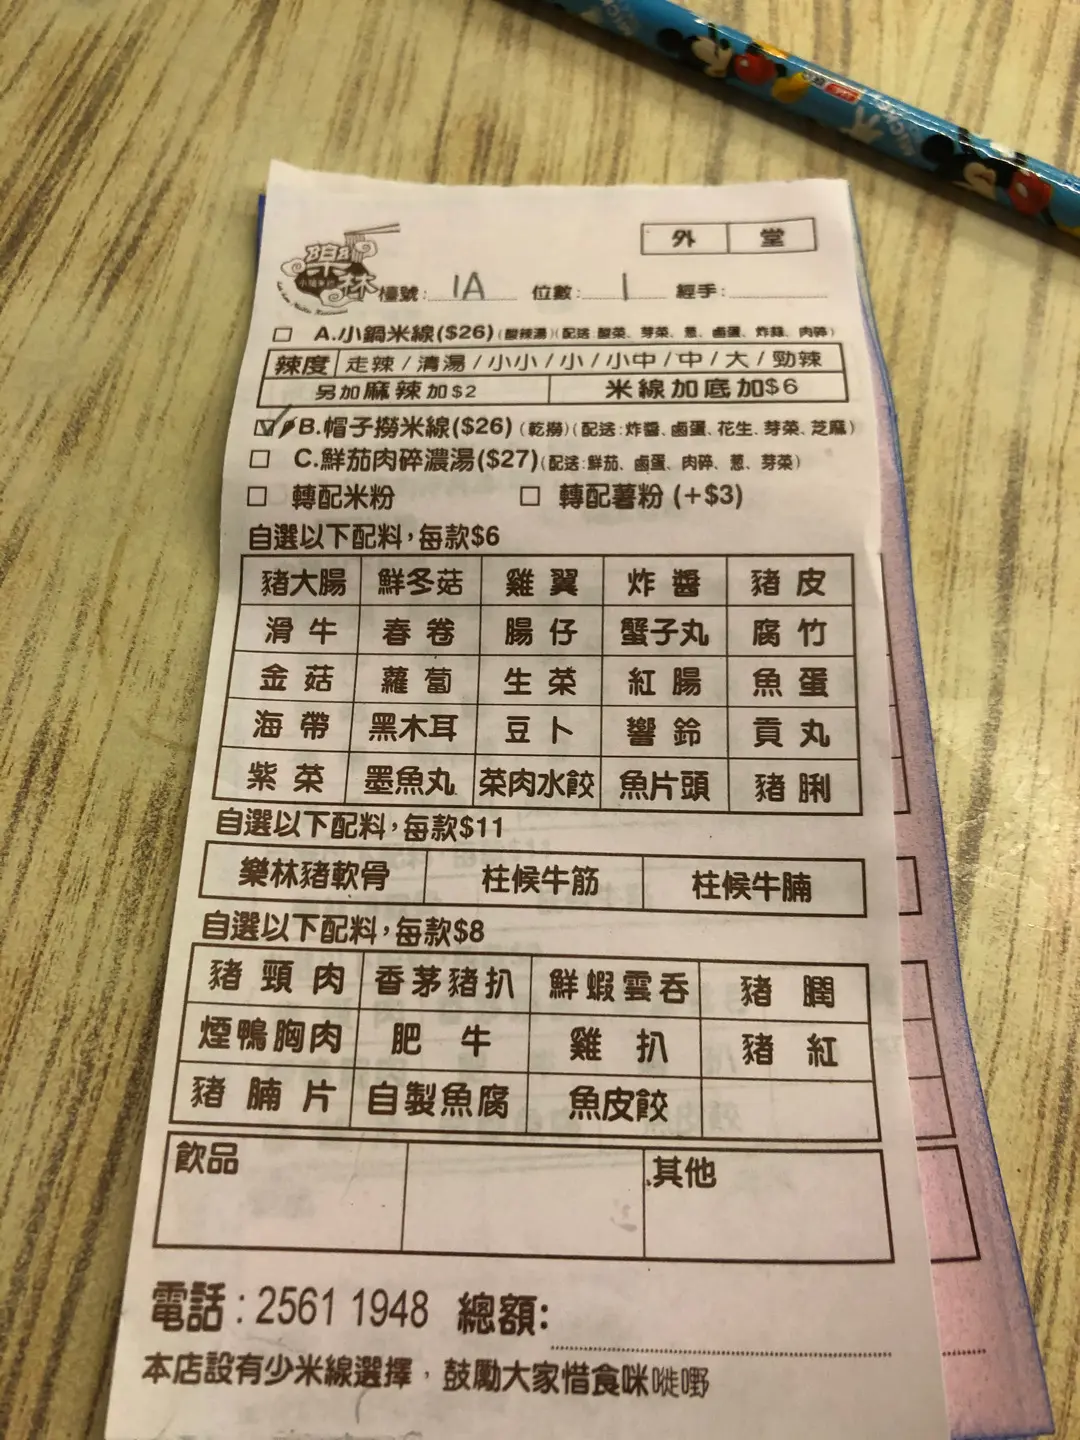 外 堂
樂林
小鍋米線
檯號: 1A 位數: 1 經手:
A.小鍋米線($26)(酸辣湯)(配送 酸菜、芽菜、葱、鹵蛋、炸蒜、肉碎)
辣度 走辣/清湯/小小/小/小中/中/大/勁辣
另加麻辣加$2 米線加底加$6
B.帽子撈米線($26) (乾撈)(配送:炸醬、鹵蛋、花生、芽菜、芝麻)
C.鮮茄肉碎濃湯($27)(配送:鮮茄、鹵蛋、肉碎、葱、芽菜)
轉配米粉 轉配薯粉 (+$3)
自選以下配料,每款$6
豬大腸 鮮冬菇 雞翼 炸醬 豬皮
滑牛 春卷 腸仔 蟹子丸 腐竹
金菇 蘿蔔 生菜 紅腸 魚蛋
海帶 黑木耳 豆卜 響鈴 貢丸
紫菜 墨魚丸 菜肉水餃 魚片頭 豬脷
自選以下配料,每款$11
樂林豬軟骨 柱候牛筋 柱候牛腩
自選以下配料,每款$8
豬頸肉 香茅豬扒 鮮蝦雲吞 豬膶
煙鴨胸肉 肥牛 雞扒 豬紅
豬腩片 自製魚腐 魚皮餃
飲品 其他
電話:2561 1948 總額:
本店設有少米線選擇,鼓勵大家惜食咪嘥嘢